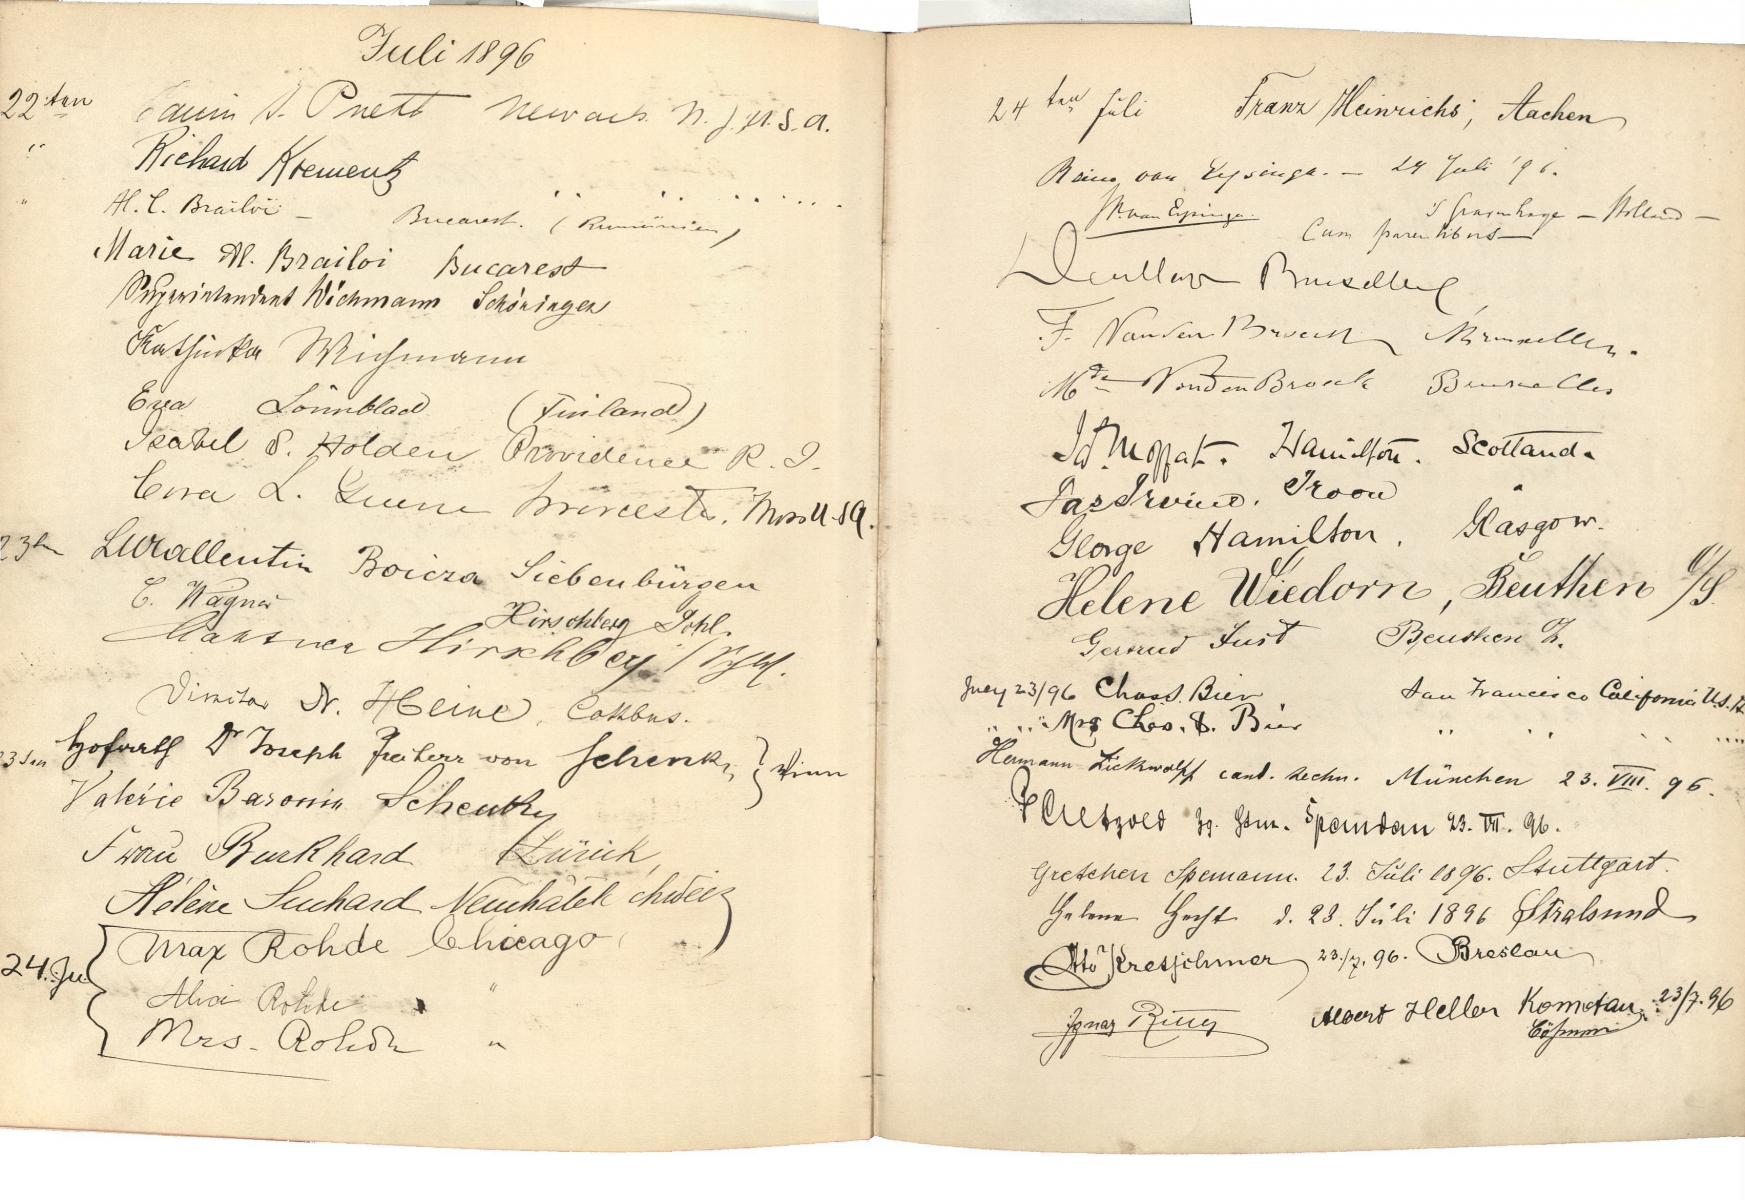 Juli 1896
22ten Newark N. J. U. S. A.
" Richard Krementz
" M. C. Brailoi - Bucarest. (Rumänien)
Marie M. Brailoi Bucarest
Superintendent Wichmann Schöningen
Kathinka Wichmann
Eva Lönnblad (Finland)
Isabel S. Holden Providence R. I.
Cora L. Greene Worcester, Mass U.S.A.
23ten Boicza Siebenbürgen
C. Wagner Hirschberg Schl.
Hirschberg / Schl.
Director Dr. Heine, Cottbus.
23ten Hofrath Dr Joseph Freiherr von Schenk, } Wien
Valerie Baronin Schenk
Frau Burkhard Zürich,
Hélène Suchard Neuchâtel Schweiz
24. Ju. Max Rohde Chicago
Rohde "
Mrs. Rohde "
24ten Juli Franz Heinrichs, Aachen
van Eysinga. - 24 Juli '96.
van Eysinga. s Gravenhage - Holland -
Cum parentibus
F. Vanden Broeck Bruxelles.
Mde Vanden Broeck Bruxelles
Jd. Moffat. Hamilton. Scotland.
Jas Irvine. Troon
George Hamilton. Glasgow.
Helene Wiedorn, Beuthen O/S.
Gertrud Just Beuthen
July 23/96 Chas S. Bier San Francisco California U.S.A.
" " " Mrs Chas. S. Bier " " " "
Hermann Lickwolff cand. techn. München 23. VIII. 96.
Spandau 23. VII. 96.
Gretchen Spemann. 23. Juli 1896. Stuttgart.
Helene Hecht d. 23. Juli 1896 Stralsund
Otto Kretschmer 23./7. 96. Breslau
Ignaz Albert Heller Komotau 23/7. 96
Böhmen